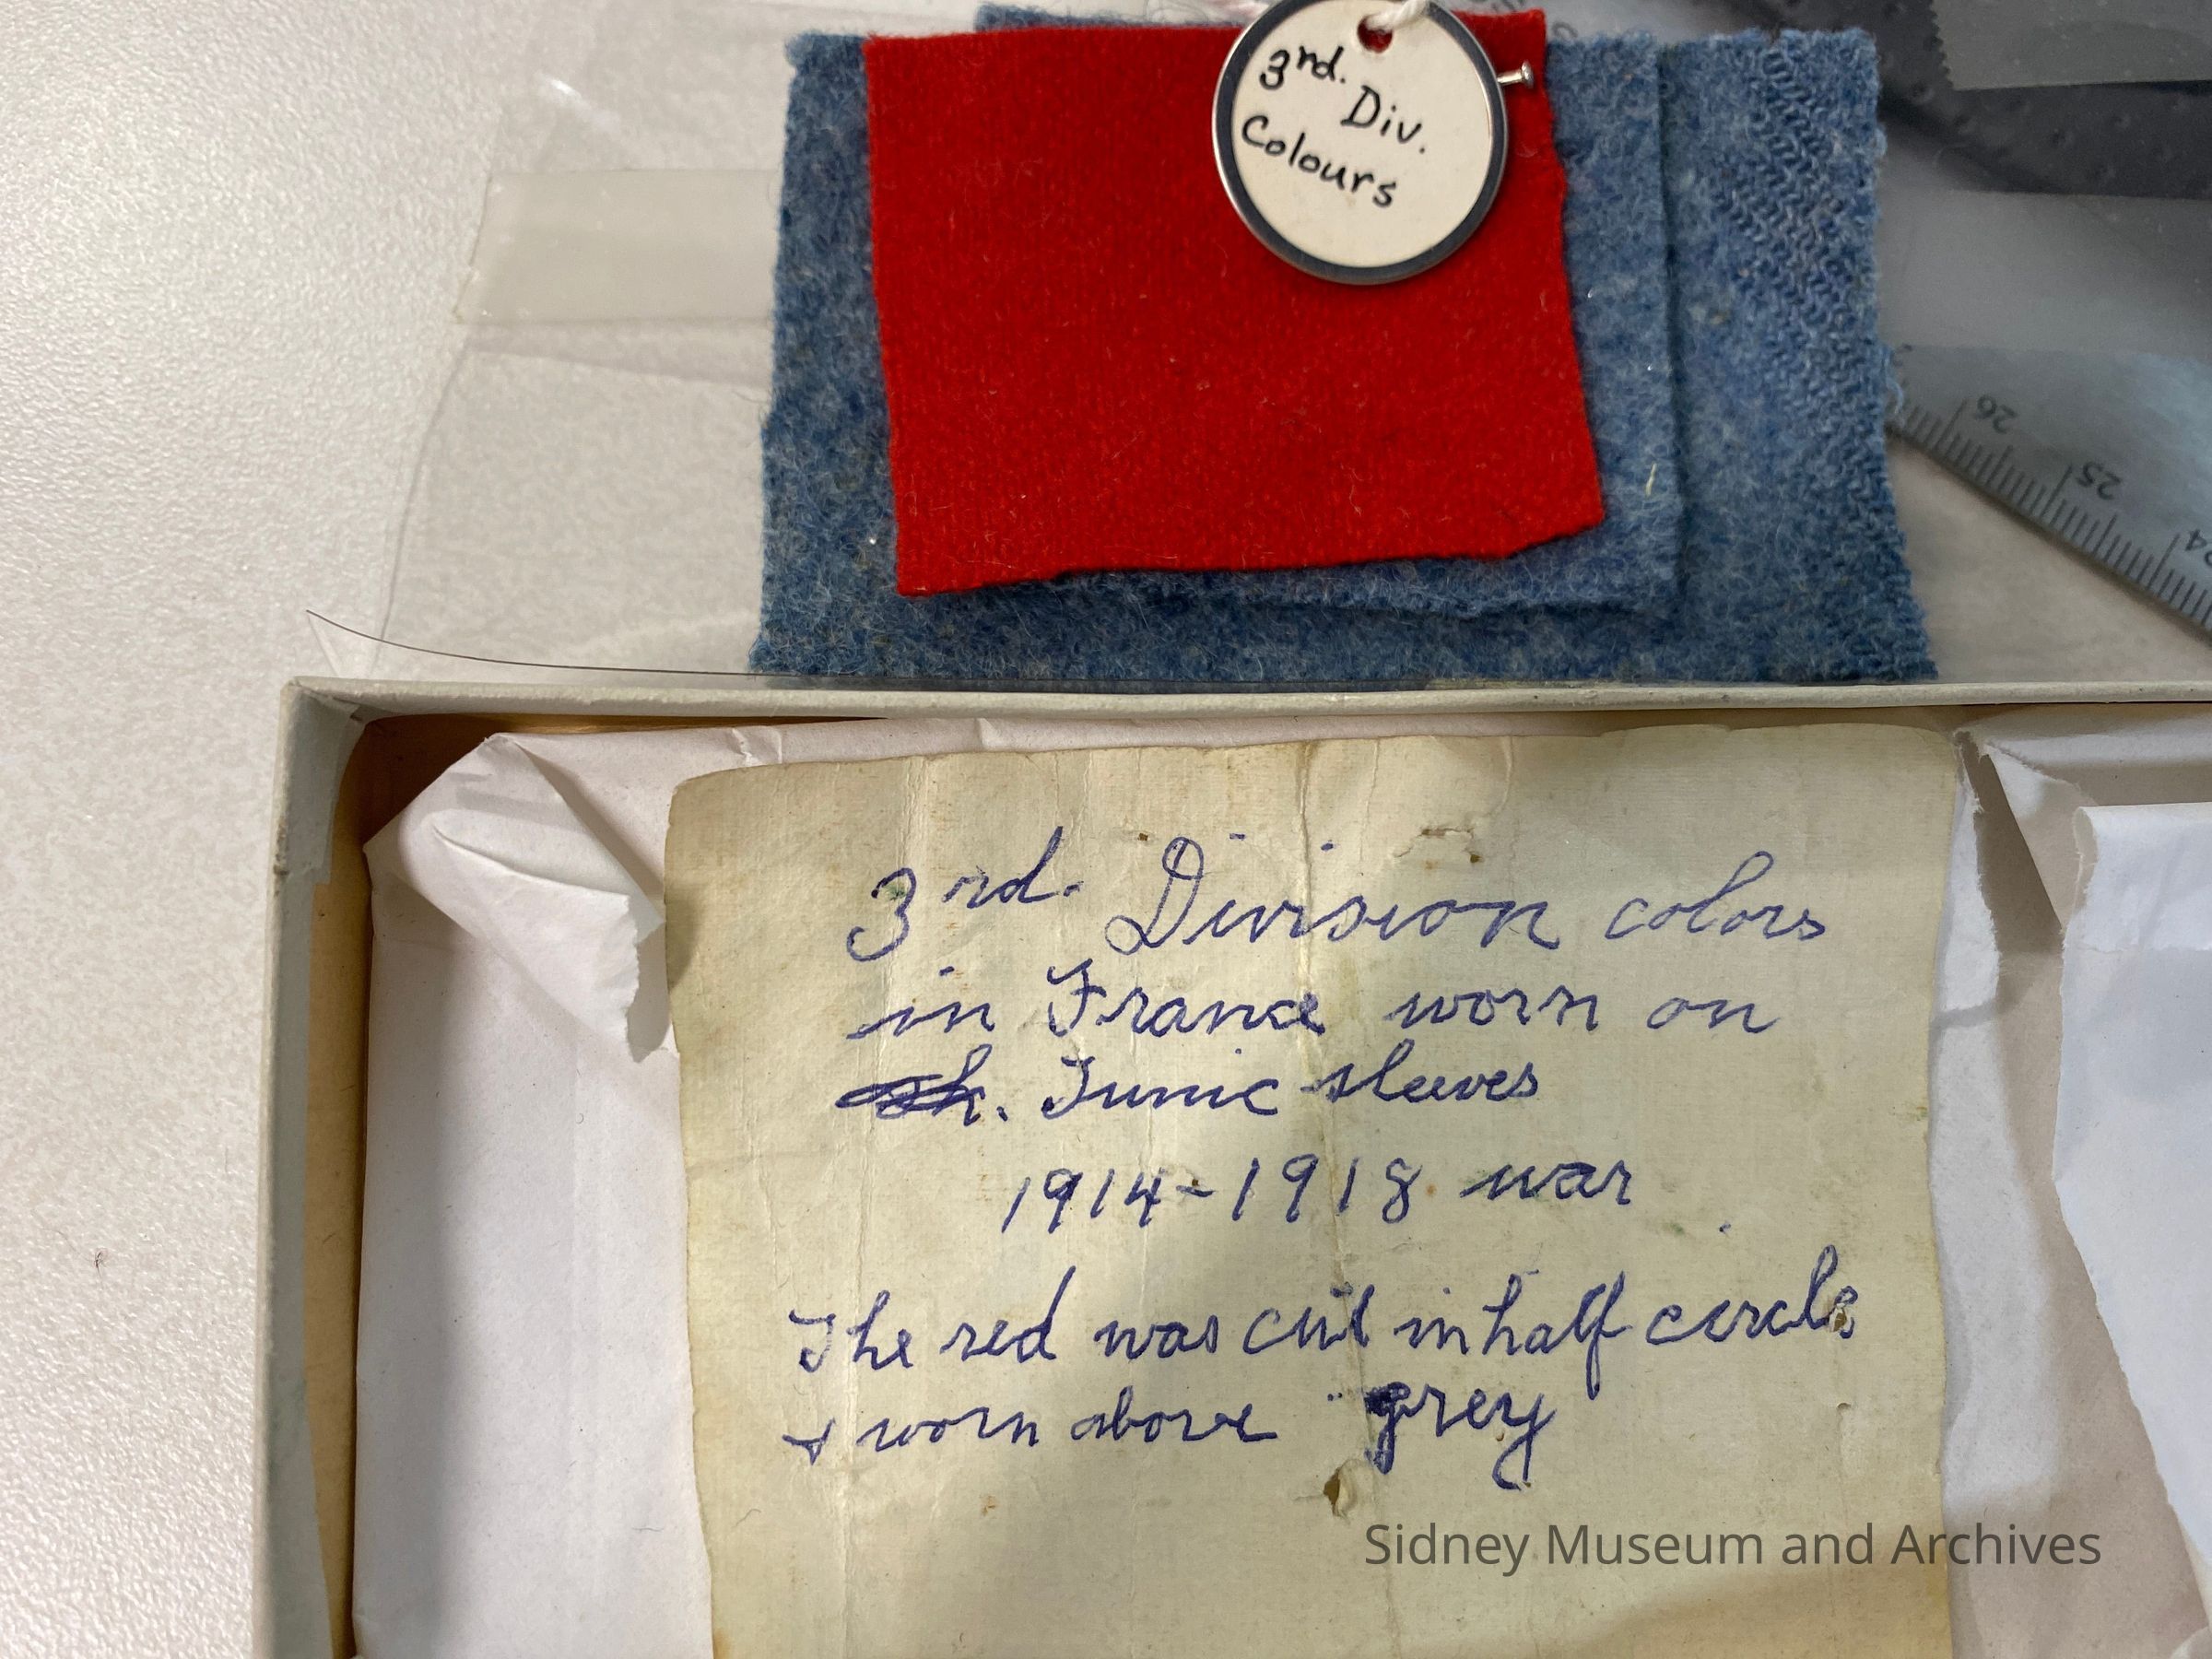 3rd.
Div.
Colours
26
25
24
3rd. Division colors
in France worn on
Tunic sleeves
1914-1918 war
The red was cut in half circle
& worn above grey
Sidney Museum and Archives